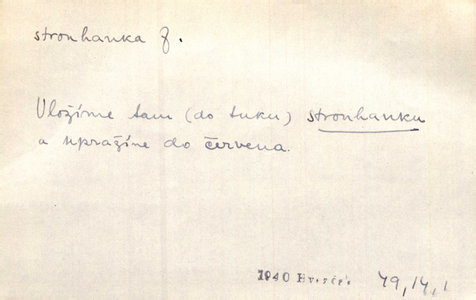 stronhanka f.
Vložíme tam (do tuku) stronhanku
a upražíme do červena.
1940
79, 14, 1